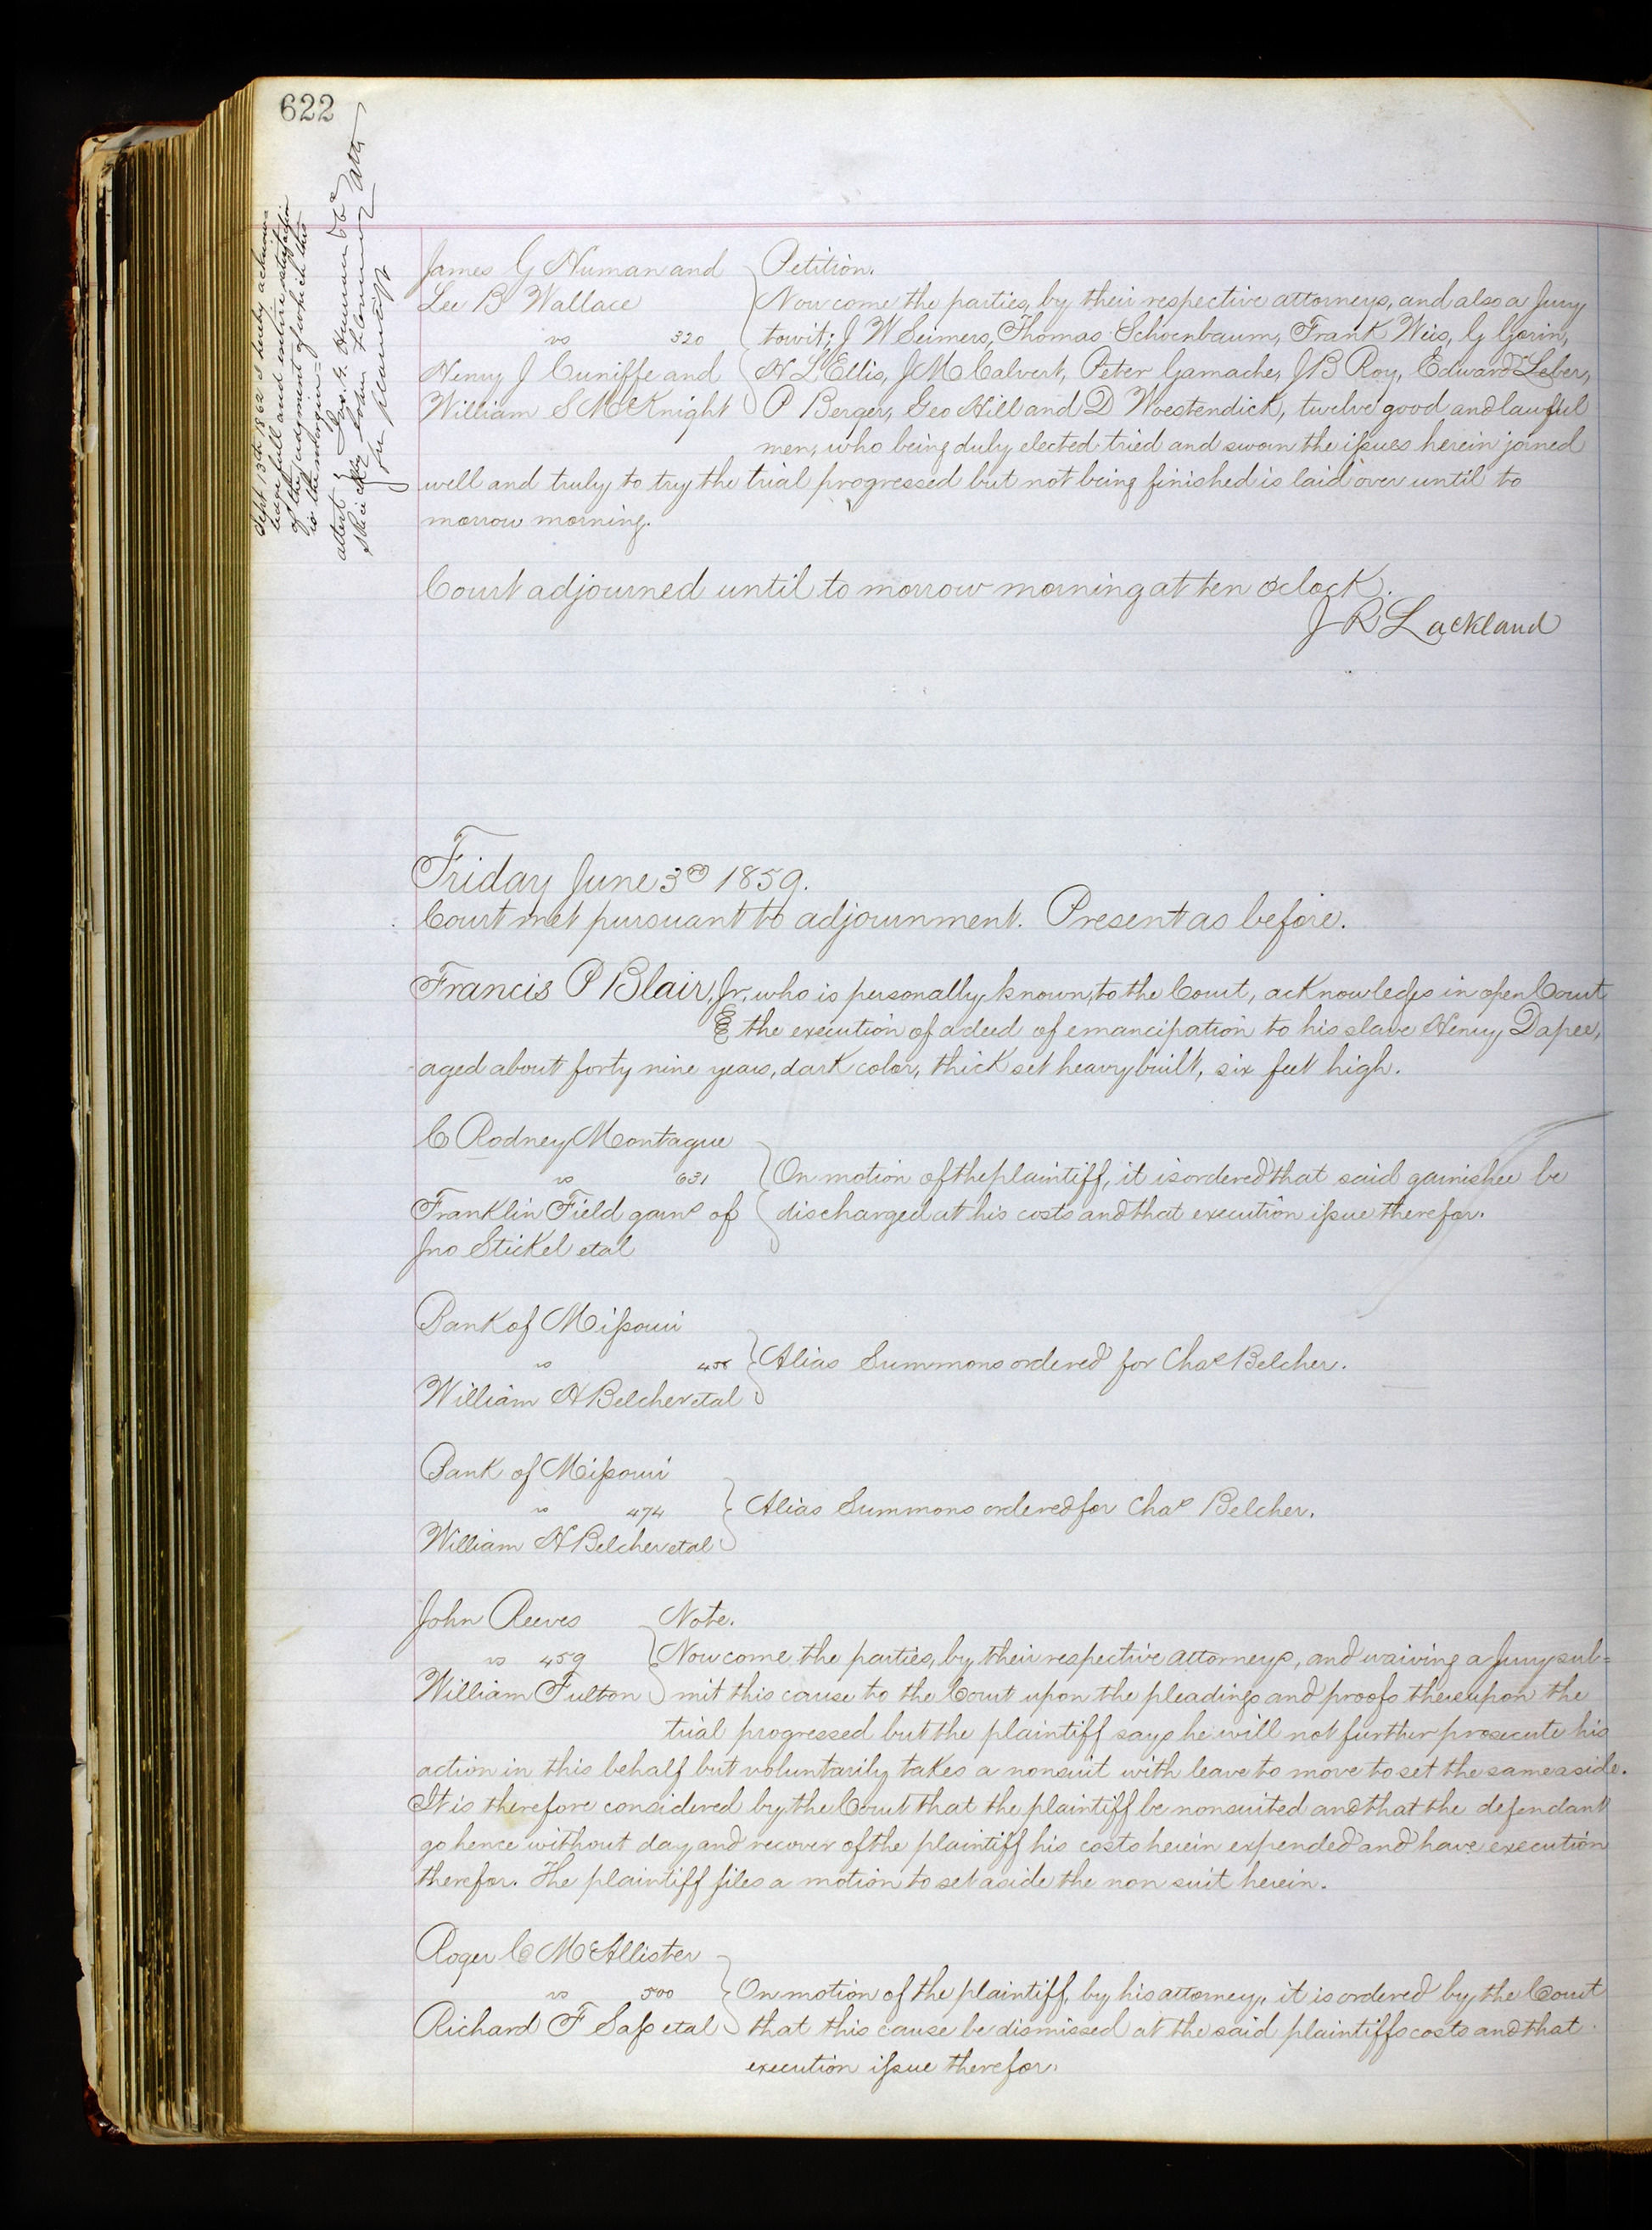 622
Sept 13th 1862 I hereby acknow-
ledge full and entire satisfaction
of the judgment of which this
is the margin =
attest
for plaintiff
James G Numan and
Lee B Wallace
vs 320
Henry J Cuniffe and
William S McKnight
Petition.
Now come the parties, by their respective attorneys, and also a Jury
towit; J W Seimers, Thomas Schoenbaum, Frank Weis, G Gorin,
H L Ellis, J M Calvert, Peter Gamache, J B Roy, Edward Leber,
P Berger, Geo Hill and D Woestendick, twelve good and lawful
men, who being duly elected tried and sworn the issues herein joined
well and truly to try the trial progressed but not being finished is laid over until to
morrow morning.
Court adjourned until to morrow morning at ten o'clock.
J R Lackland
Friday June 3rd 1859.
Court met pursuant to adjournment. Present as before.
Francis P Blair, Jr. who is personally known, to the Court, acknowledges in open Court
E the execution of a deed of emancipation to his slave Henry Dapee,
aged about forty nine years, dark color, thick set heavy built, six feet high.
C Rodney Montague
vs 631
Franklin Field garns of
Jno Stickel etal
On motion of the plaintiff, it is ordered that said garnishee be
discharged at his costs and that execution issue therefor.
Bank of Missouri
vs 455
William H Belcher etal
Alias Summons ordered for Chas Belcher.
Bank of Missouri
vs 474
William H Belcher etal
Alias Summons ordered for Chas Belcher.
John Reeves
vs 459
William Fulton
Note.
Now come the parties, by their respective attorneys, and waiving a Jury sub=
mit this cause to the Court upon the pleadings and proofs thereupon the
trial progressed but the plaintiff says he will not further prosecute his
action in this behalf but voluntarily takes a nonsuit with leave to move to set the same aside.
It is therefore considered by the Court that the plaintiff be nonsuited and that the defendant
go hence without day and recover of the plaintiff his costs herein expended and have execution
therefor. The plaintiff files a motion to set aside the non suit herein.
Roger C McAllister
vs 500
Richard F Sass etal
On motion of the plaintiff, by his attorney, it is ordered by the Court
that this cause be dismissed at the said plaintiffs costs and that
execution issue therefor.